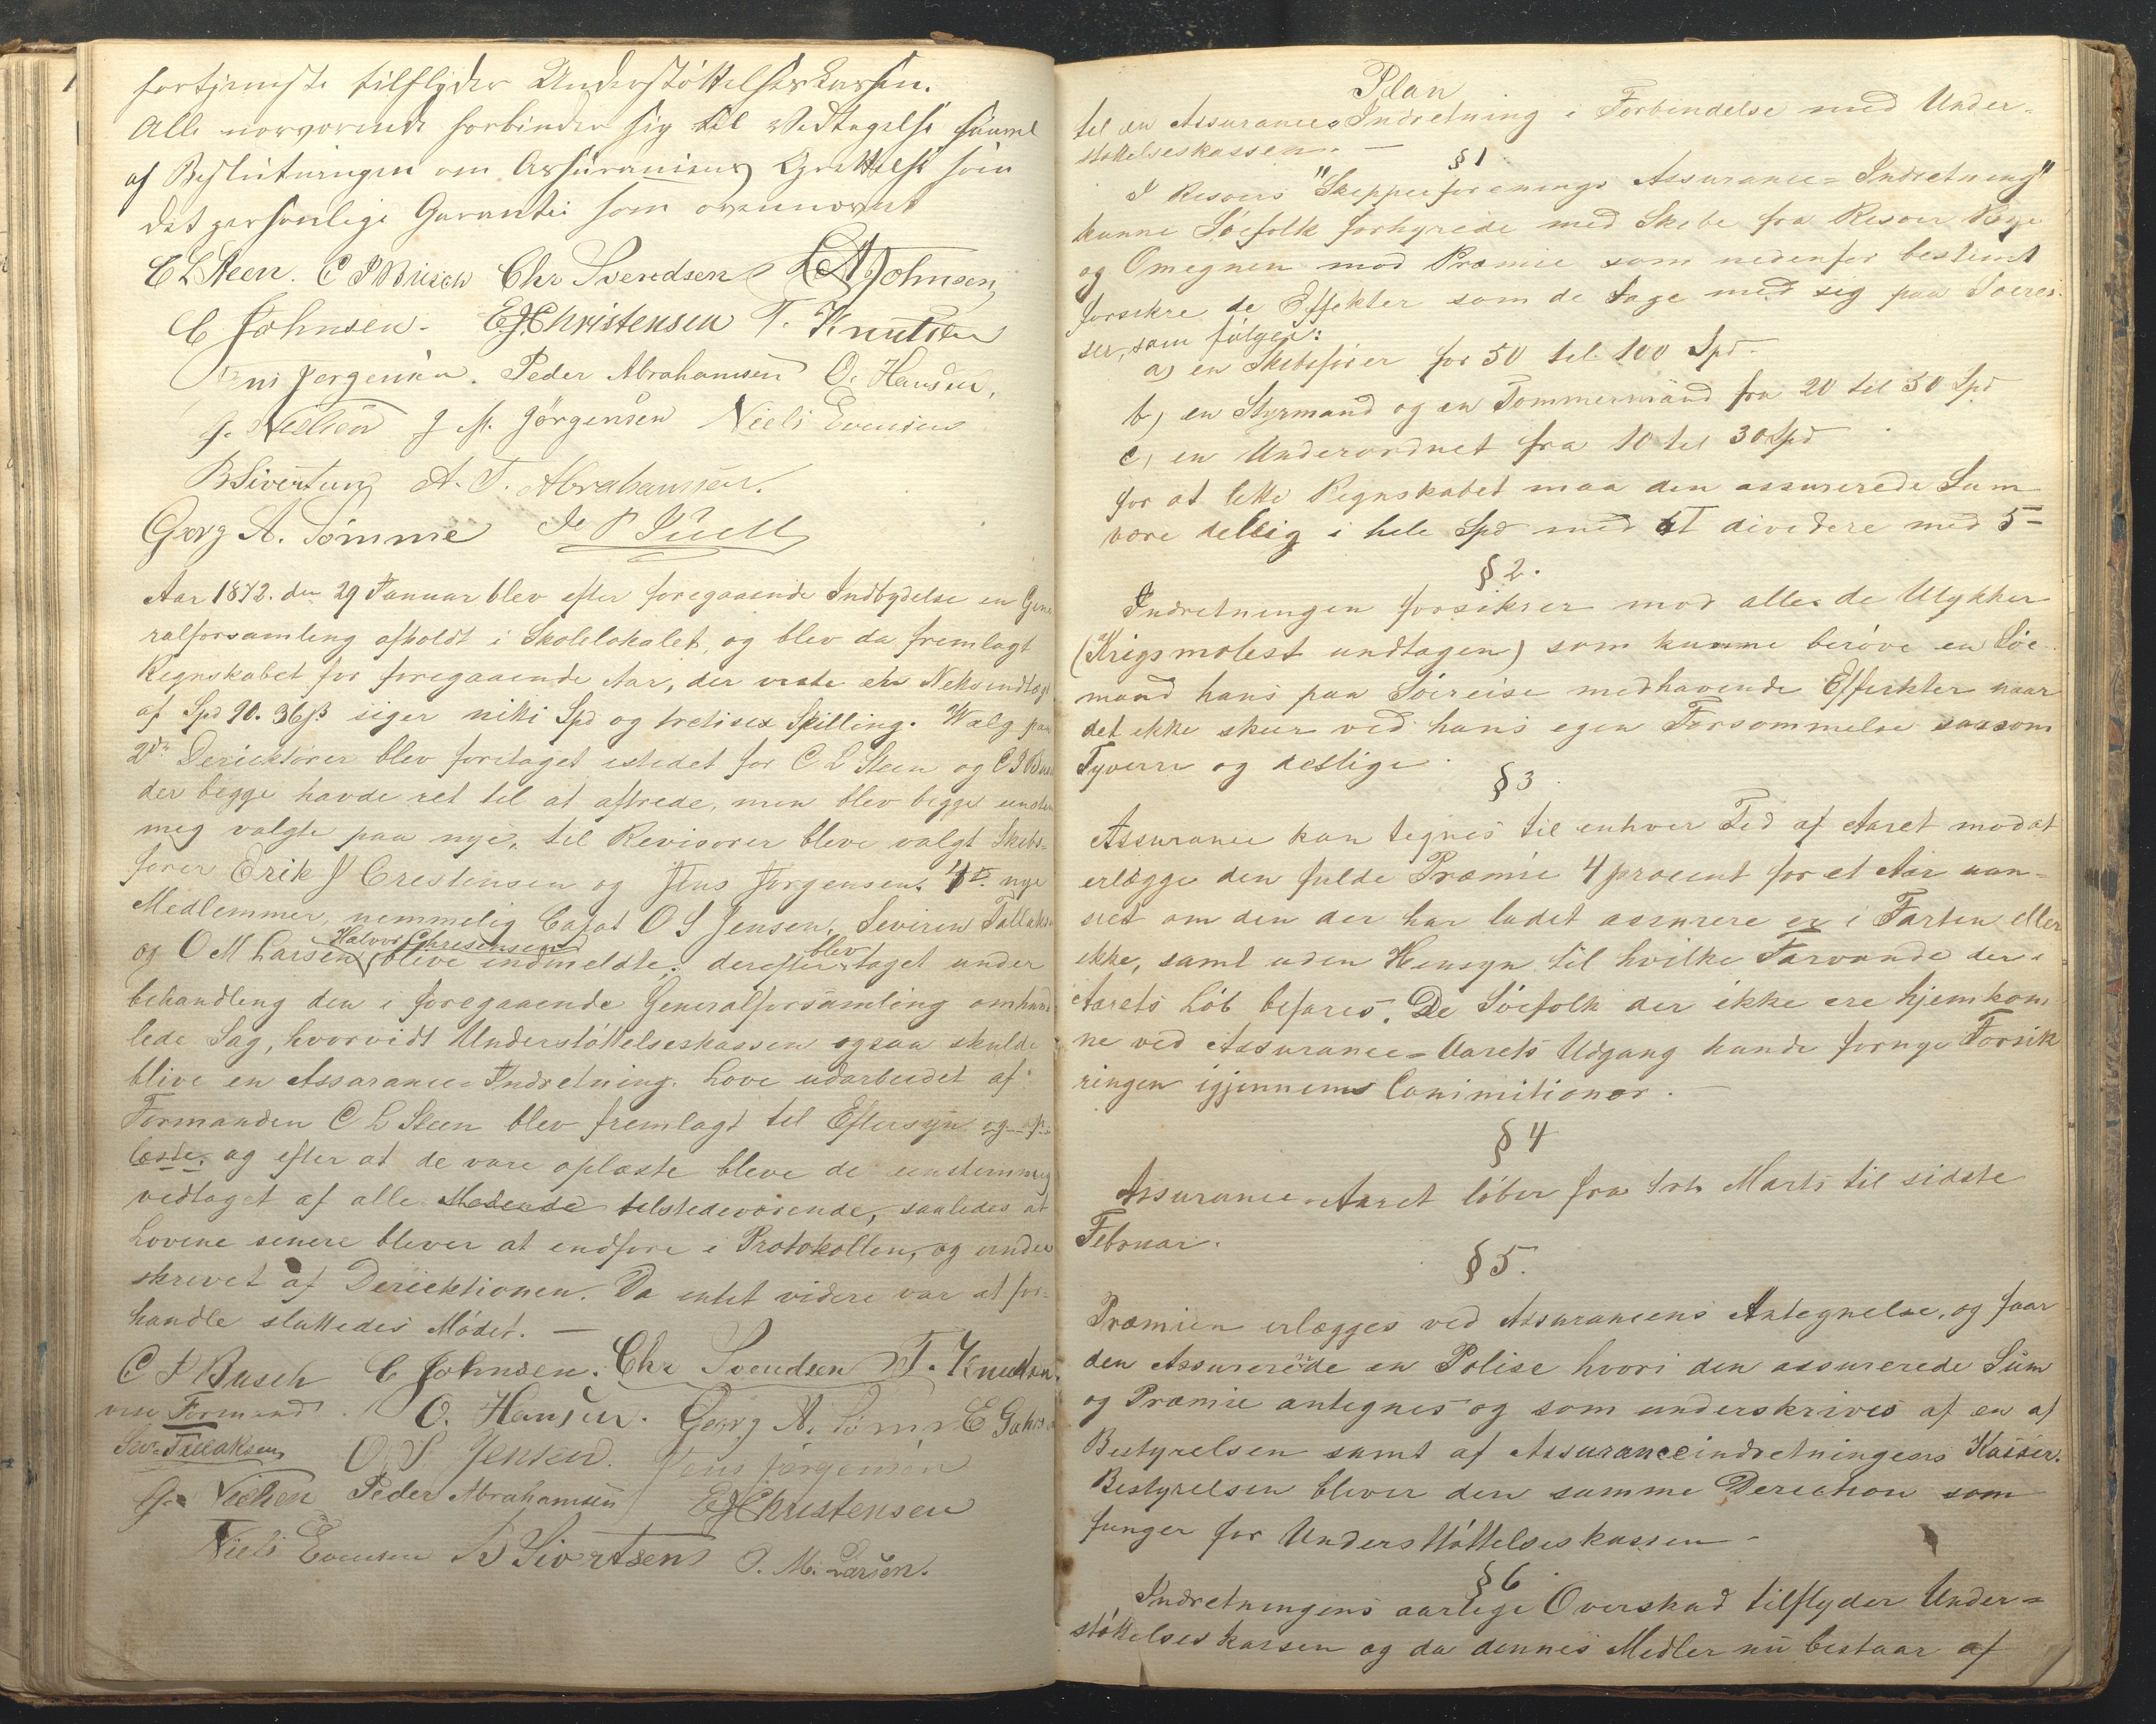 fortjeneste tilflyder Understöttelseskassen.
Alle nærværende forbinder sig til Vedtagelse saavel
af Beslutningen om Assurancens Oprettelse som
det personlige Garanti som ovennævnt
C L Steen. C P Busch Chr Svendsen L A Johnsen
C Johnsen. E J Christensen T. Knutsen
Jens Jørgensen. Peder Abrahamsen O. Hansen.
J. Nielsen J M. Jörgensen Niels Evensen
B Sivertsen A. T. Abrahamsen.
Georg A. Sömme
Aar 1872. den 29 Januar blev efter foregaaende Indbydelse en Gene
ralforsamling afholdt i Skolelokalet, og blev da fremlagt
Regnskabet for foregaaende Aar, der viste en Netto indtægt
af Spd 90. 36 ß siger nitti Spd og tretisex Skilling. Valg paa
2de Deriektörer blev foretaget istedet for C L Steen og C P Busch
der begge havde ret til at aftrede, men blev begge enstem
mig valgte paa nye, til Revisorer bleve valgt Skibs-
förer Erik J Crestensen og Jens Jörgensen. 4de nye
Medlemmer, nemmelig Capt O S Jensen, Seviren Tallaks
Halvor Chrestensen blev
og O M Larsen bleve indmeldte; derefter taget under
behandling den i foregaaende Generalforsamling omhand
lede Sag, hvorvidt Understöttelseskassen ogsaa skulde
blive en Assarance-Indretning. Love udarbeidet af
Formanden C L Steen blev fremlagt til Eftersyn og op
læste, og efter at de vare oplæste bleve de eenstemmig
vedtaget af alle Mödende tilstedeværende, saaledes at
Lovene senere bliver at indföre i Protokollen, og under
skrevet af Deriektionen. Da intet videre var at for-
handle sluttedes Mödet. —
C P Busch C Johnsen. Chr Svendsen T. Knutsen.
vice Formand. O. Hansen. Georg A. Sömme E Johnsen
Sev. Tallaksen O. S Jensen. Jens Jørgensen
J. Nielsen Peder Abrahamsen E J Christensen
Niels Evensen B Sivertsen O. M. Larsen.
Plan
til en Assurance-Indretning i Forbindelse med Under-
stöttelseskassen. —
§ 1
I Risoers "Skipperforenings Assurance-Indretning"
kunne Söefolk forhyrede med Skibe fra Risoer Bye
og Omegnen mod Præmie som nedenfor bestemt
forsikre de Effekter som de tage med sig paa Söerei-
ser, som fölger:
a) en Skibsförer for 50 til 100 Spd.
b) en Styrmand og en Tommermand fra 20 til 50 Spd
c) en Underordnet fra 10 til 30 Spd
for at lette Regnskabet maa den assurerede Sum
være dellig i hele Spd med at dividere med 5 –
§ 2.
Indretningen forsikrer mod alle de Ulykker
(Krigsmolest undtagen) som kunne beröve en Söe-
mand hans paa Söereise medhavende Effekter naar
det ikke skeer ved hans egen Forsommelse saasom
Tyverie og deslige.
§ 3
Assurance kan tegnes til enhver Tid af Aaret mod at
erlægge den fulde Præmie 4 procent for et Aar uan-
seet om den der har ladet assurere er i Farten eller
ikke, samt uden Hensyn til hvilke Farvande der i
Aarets Löb befares. De Söefolk der ikke ere hjemkom
ne ved Assurance-Aarets Udgang kunde fornye Forsik
ringen igjennems Comimitioner. —
§ 4
Assurance-Aaret löber fra 1ste Marts til sidste
Februar.
§ 5.
Præmien erlægges ved Assurancens Antegnelse, og faar
den Assurerede en Polise hvori den assurerede Sum
og Præmie antegnes og som underskrives af en af
Bestyrelsen samt af Assuranceindretningens Kasser.
Bestyrelsen bliver den samme Derection som
funger for Understöttelseskassen –
§ 6
Indretningens aarlige Overskud tilflyder Under-
stöttelseskassen og da dennes Midler nu bestaar af